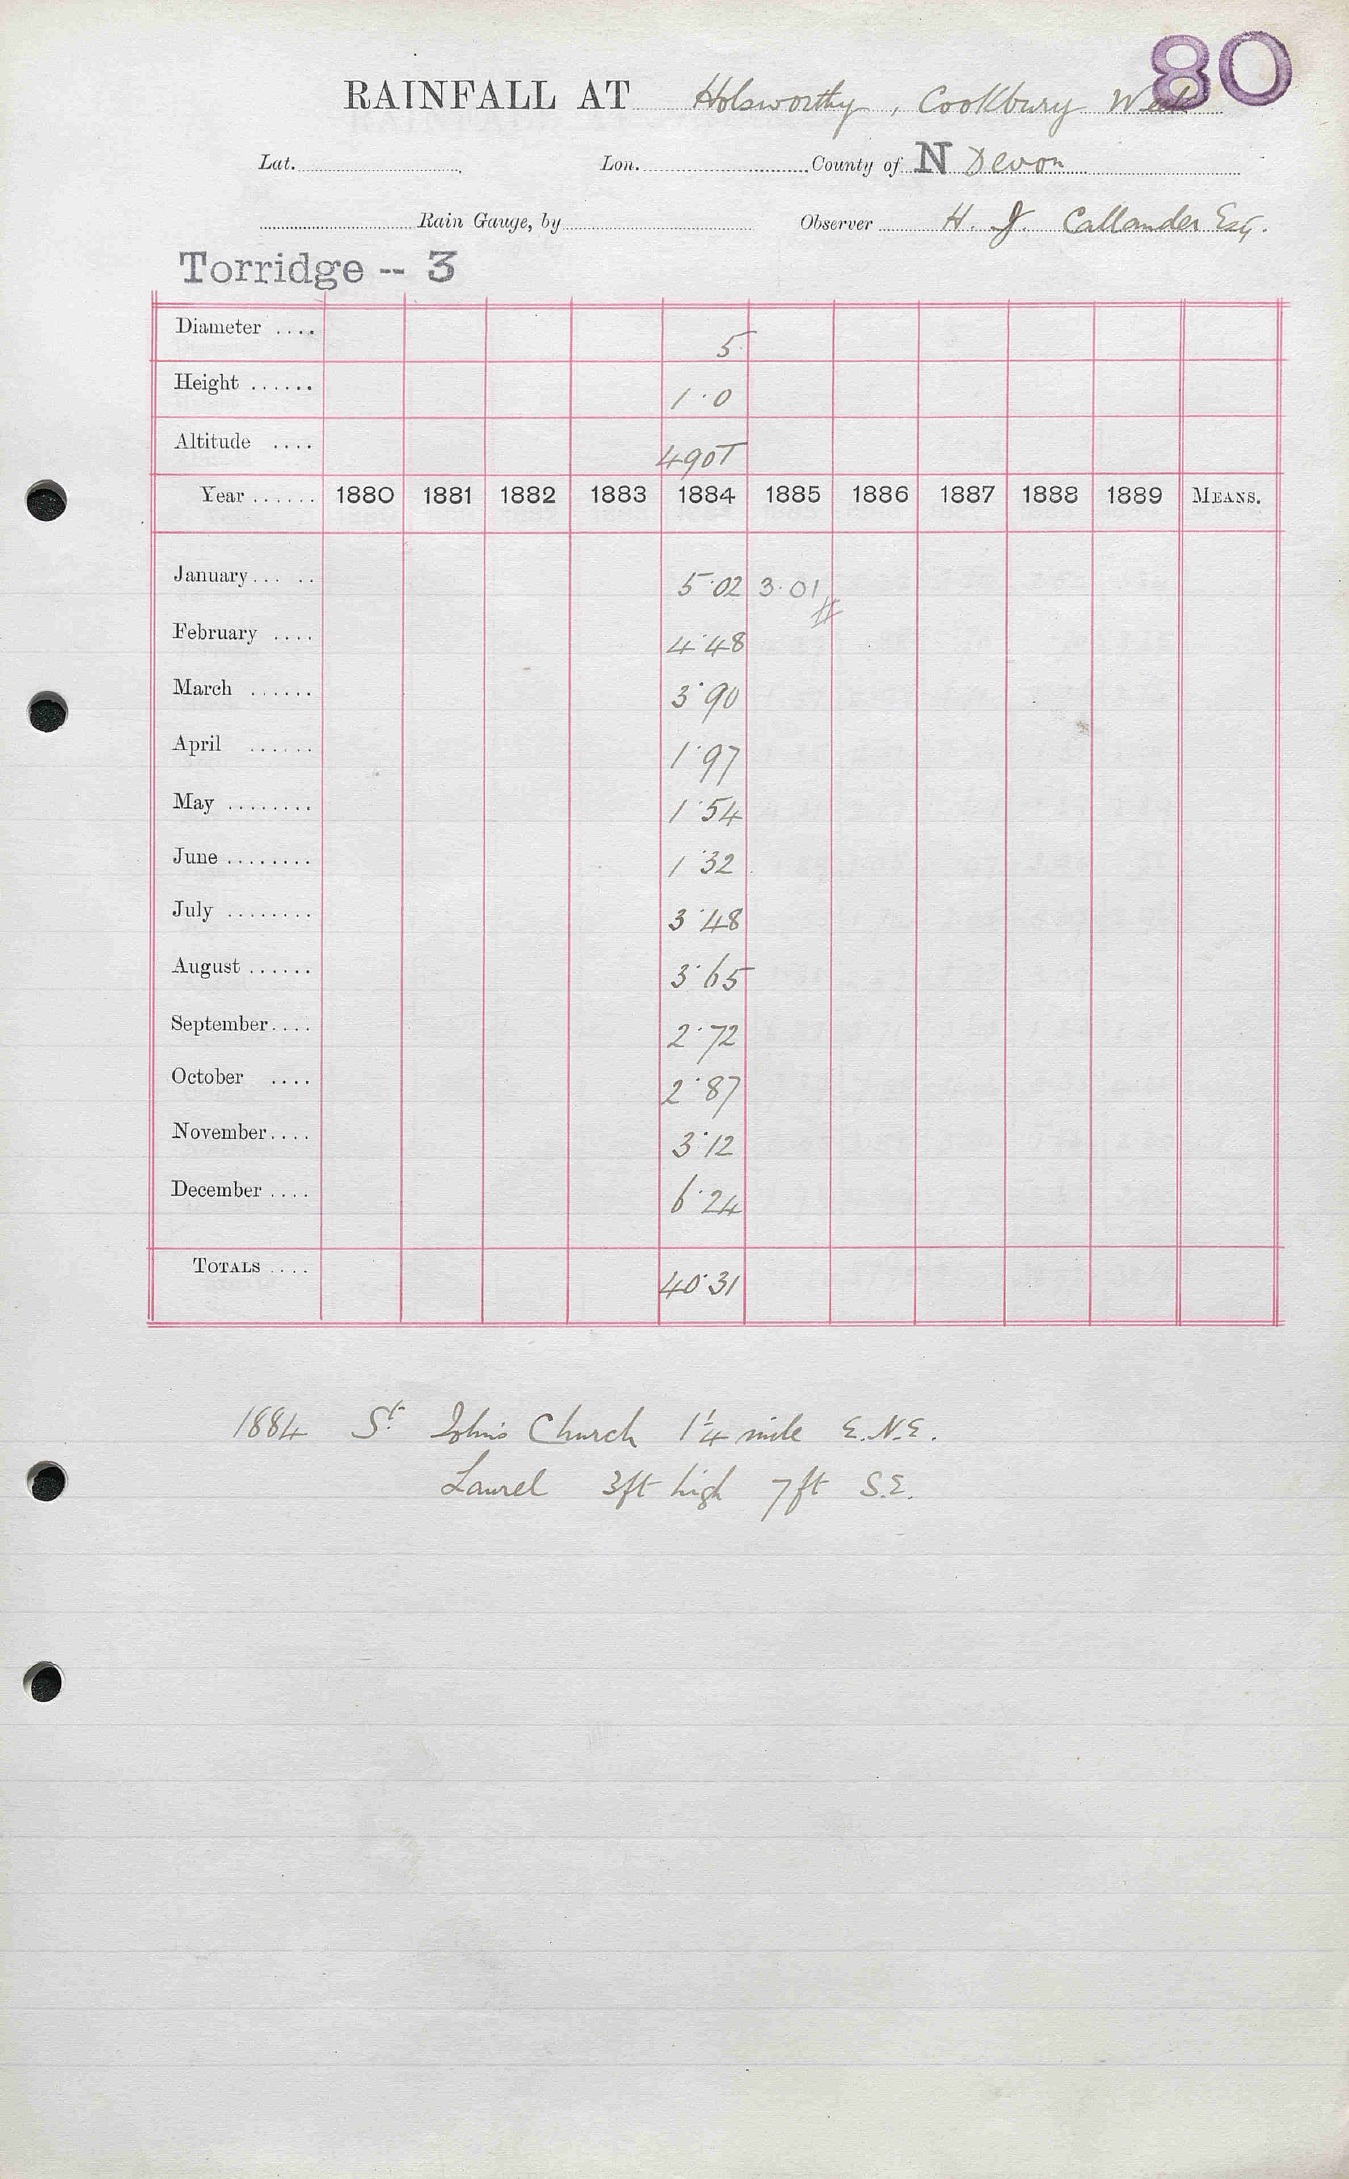 80
RAINFALL AT Holsworthy, Cookbury Week
Lat. Lon. County of N Devon
Rain Gauge, by Observer H. J. Callander Esq.
Torridge -- 3
Diameter .... 5
Height ...... 1.0
Altitude .... 490T
Year ...... 1880 1881 1882 1883 1884 1885 1886 1887 1888 1889 MEANS.
January... .. 5.02 3.01 #
February .... 4.48
March ...... 3.90
April ...... 1.97
May ........ 1.54
June ........ 1.32
July ........ 3.48
August ...... 3.65
September.... 2.72
October .... 2.87
November.... 3.12
December .... 6.24
TOTALS .... 40.31
1884 St. John's Church 1¼ mile E.N.E.
Laurel 3ft high 7ft S.E.